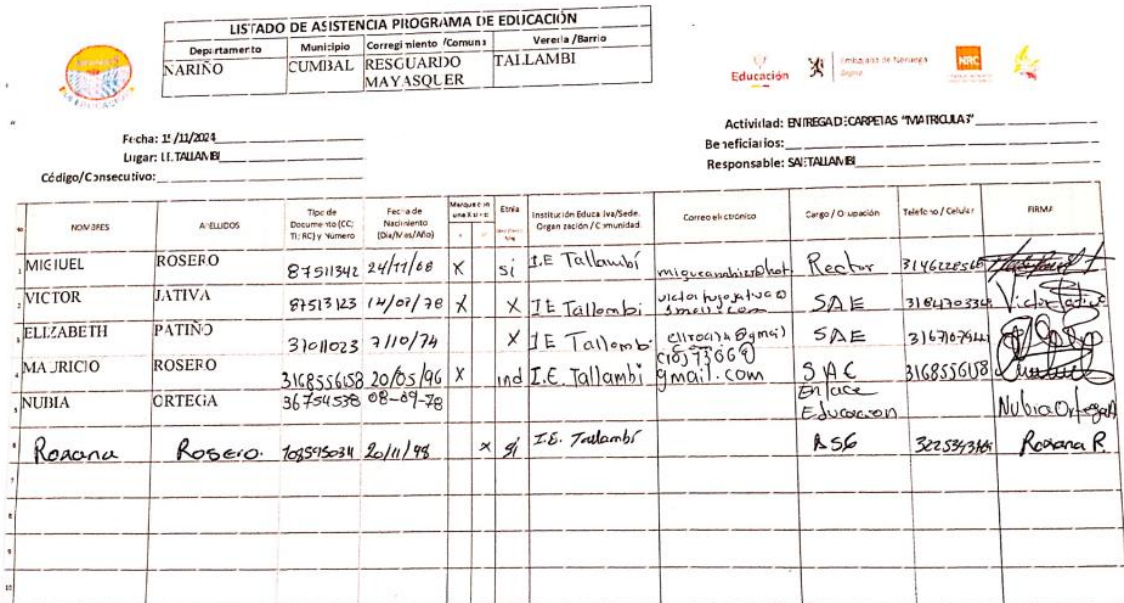 LISTADO DE ASISTENCIA PROGRAMA DE EDUCACIÓN
Departamento Municipio Corregimiento /Comuna Vereda /Barrio
NARIÑO CUMBAL RESGUARDO MAYASQUER TALLAMBI
Educación Embajada de Noruega NRC
Fecha: /11/2024
Lugar: I.E. TALLAMBI
Código/Consecutivo:
Actividad: ENTREGA DE CARPETAS "MATRICULAS"
Beneficiarios:
Responsable: SAE TALLAMBI
NOMBRES APELLIDOS Tipo de Documento (CC; TI; RC) y Número Fecha de Nacimiento (Día/Mes/Año) Marque con una X Etnia Institución Educativa/Sede. Organización / Comunidad Correo electrónico Cargo / Ocupación Telefono / Celular FIRMA
1 MIGIUEL ROSERO 87511342 24/11/68 X si I.E Tallambí Rector
2 VICTOR JATIVA 87513123 14/07/78 X X IE Tallambi SAE Victor Jativa
3 ELIZABETH PATIÑO 37011023 7/10/74 X IE Tallambi SAE
4 MAURICIO ROSERO 3168556158 20/05/96 X ind I.E. Tallambi gmail.com SAC 3168556158
5 NUBIA ORTEGA 36754538 08-09-78 Enlace Educacion Nubia Ortega
6 Roxana Rosero. 20/11/98 x si I.E. Tallambí Roxana R.
7
8
9
10